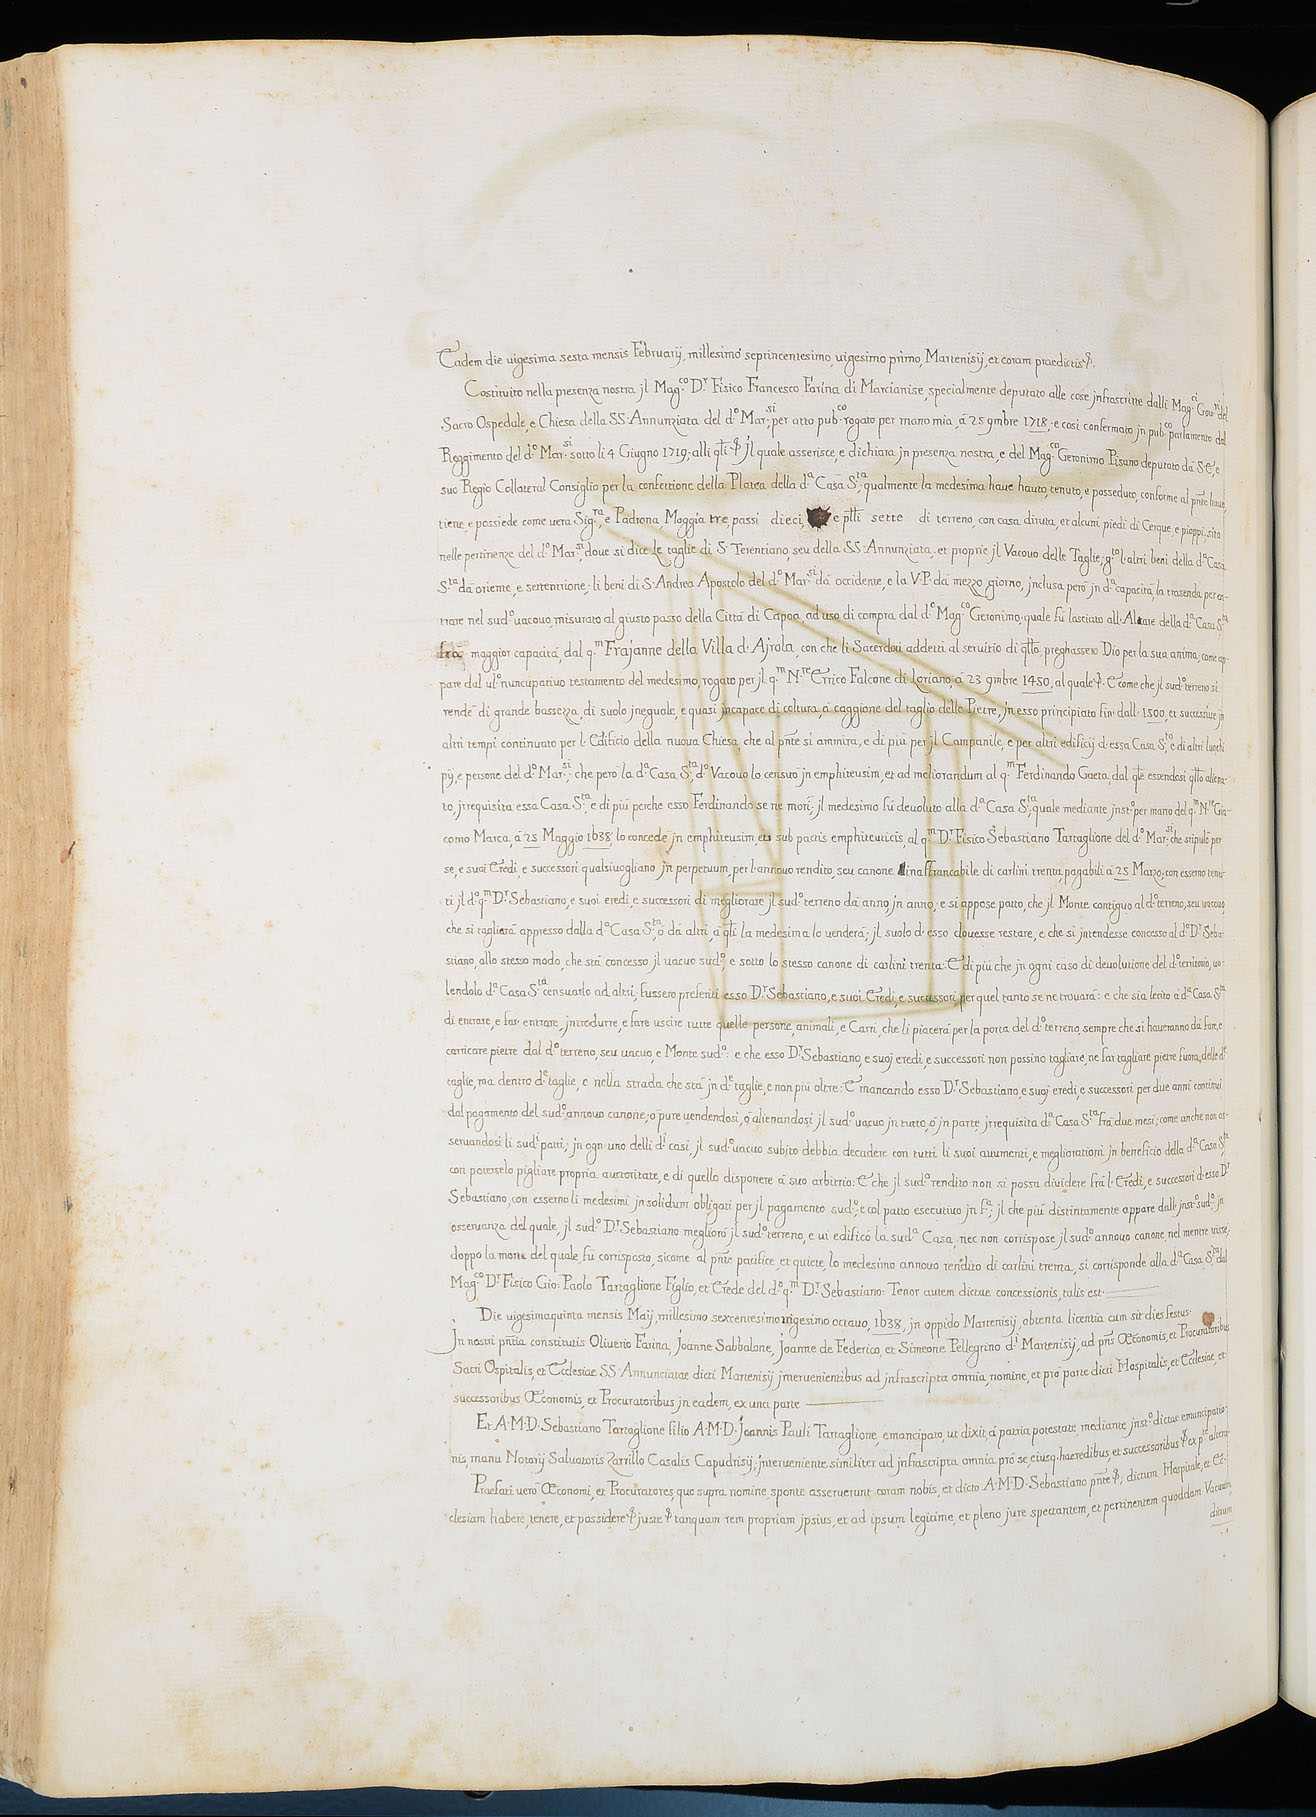 Eadem die uigesima sesta mensis Februarij, millesimo septincentesimo, uigesimo primo, Martenisij, et coram praedictis &.
Costituito nella presenza nostra jl Mag.co D.r Fisico Francesco Farina di Marcianise, specialmente deputato alle cose jnfrascritte dalli Mag.ci Gou.ri del
Sacro Ospedale, e Chiesa della SS. Annunziata del d.o Mar.si per atto pub.co rogato per mano mia, à 25 9mbre 1718, e così confermato jn pub.co parlamento dal
Reggimento del d.o Mar.si sotto li 4 Giugno 1719; alli q̃li & jl quale asserisce, e dichiara jn presenza nostra, e del Mag.co Geronimo Pisano deputato da S.E, e
suo Regio Collateral Consiglio per la confettione della Platea della d.a Casa S.ta, qualmente la medesima haue hauto, tenuto, e posseduto, conforme al pñte haue,
tiene, e possiede come uera Sig.ra, e Padrona, Moggia tre, passi dieci, e p̃tti sette di terreno, con casa diruta, et alcuni piedi di Cerque, e pioppi, sito
nelle pertinenze del d.o Mar.si, doue si dice le taglie di S. Terentiano, seu della SS. Annunziata, et proprie jl Vacouo delle Taglie, g.to l'altri beni della d.a Casa
S.ta da oriente, e settentrione, li beni di S. Andrea Apostolo del d.o Mar.si da occidente, e la V.P. da mezzo giorno, jnclusa però jn d.a capacità, la trasenda per en-
trare nel sud.o uacouo, misurato al giusto passo della Città di Capoa, ad uso di compra dal d.o Mag.co Geronimo, quale fù lasciato all'Altare della d.a Casa S.ta
frà maggior capacità, dal q.m Frajanne della Villa d'Ajrola, con che li Sacerdoti addetti al seruitio di q̃llo, preghassero Dio per la sua anima, come ap-
pare dal ul.o nuncupatiuo testamento del medesimo, rogato per jl q.m N.re Errico Falcone di Loriano, à 23 9mbre 1450, al quale &. E come che jl sud.o terreno si
rende di grande bassezza, di suolo jneguale, e quasi jncapace di coltura, à caggione del taglio delle Pietre, jn esso principiato fin' dall' 1500, et successiue jn
altri tempi continuato per l'Edificio della nuoua Chiesa, che al pñte si ammira, e di più per jl Campanile, e per altri edificij d'essa Casa S.ta, e di altri luochi
pij, e persone del d.o Mar.si; che però la d.a Casa S.ta, d.o Vacouo lo censuò jn emphiteusim, et ad meliorandum al q.m Ferdinando Gaeta, dal q̃le essendosi q̃llo aliena-
to, jrrequisita essa Casa S.ta, e di più perche esso Ferdinando se ne morì; jl medesimo fù deuoluto alla d.a Casa S.ta, quale mediante jnst.o per mano del q.m N.re Gia-
como Marca, à 25 Maggio 1638, lo concedè jn emphiteusim, et sub pactis emphiteuticis, al q.m D.r Fisico Sebastiano Tartaglione del d.o Mar.si, che stipulò per
se, e suoi Eredi, e successori qualsiuogliano jn perpetuum, per l'annouo rendito, seu canone inaffrancabile di carlini trenta, pagabili à 25 Marzo; con esserno tenu-
ti jl d.o q.m D.r Sebastiano, e suoi eredi, e successori di megliorare jl sud.o terreno da anno, jn anno; e si appose patto, che jl Monte contiguo al d.o terreno, seu uacouo,
che si tagliarà appresso dalla d.a Casa S.ta, ò da altri, à q̃li la medesima lo uenderà; jl suolo d'esso douesse restare, e che si jntendesse concesso al d.o D.r Seba-
stiano, allo stesso modo, che stà concesso jl uacuo sud.o, e sotto lo stesso canone di carlini trenta: E di più che jn ogni caso di deuolutione del d.o territorio, uo-
lendolo d.a Casa S.ta censuarlo ad altri, fussero preferiti esso D.r Sebastiano, e suoi Eredi, e successori per quel tanto se ne trouarà: e che sia lecito à d.a Casa S.ta
di entrare, e far entrare, jntrodurre, e fare uscire tutte quelle persone, animali, e Carri, che li piacerà per la porta del d.o terreno, sempre che si haueranno da fare, e
carricare pietre dal d.o terreno, seu uacuo, e Monte sud.o: e che esso D.r Sebastiano, e suoj eredi, e successori non possino tagliare, ne far tagliare pietre fuora, delle d.e
taglie, ma dentro d.e taglie, e nella strada che stà jn d.e taglie, e non più oltre: E mancando esso D.r Sebastiano, e suoj eredi, e successori per due anni continui
dal pagamento del sud.o annouo canone; o pure uendendosi, ò alienandosi jl sud.o uacuo jn tutto, ò jn parte, jrrequisita d.a Casa S.ta frà due mesi; come anche non os-
seruandosi li sud.i patti; jn ogn'uno delli d.i casi, jl sud.o uacuo subito debbia decadere con tutti li suoi auumenti, e megliorationi jn beneficio della d.a Casa S.ta,
con poterselo pigliare propria auctoritate, e di quello disponere à suo arbitrio: E che jl sud.o rendito non si possa diuidere frà l'Eredi, e successori d'esso D.r
Sebastiano, con esserno li medesimi jn solidum obligati per jl pagamento sud.o; e col patto esecutiuo jn f.a; jl che più distintamente appare dall' jnst.o sud.o; jn
osseruanza del quale, jl sud.o D.r Sebastiano megliorò jl sud.o terreno, e ui edificò la sud.a Casa, nec non corrispose jl sud.o annouo canone, nel mentre uisse,
doppo la morte del quale, fù corrisposto, sicome al pñte pacifice, et quiete, lo medesimo annouo rendito di carlini trenta, si corrisponde alla d.a Casa S.ta, dal
Mag.co D.r Fisico Gio: Paolo Tartaglione Figlio, et Erede del d.o q.m D.r Sebastiano: Tenor autem dictae concessionis, talis est.
Die uigesimaquinta mensis Maij, millesimo sexcentesimo trigesimo octauo, 1638, jn oppido Martenisij, obtenta licentia cum sit dies festus.
Jn nostri pñtia constitutis Oliuerio Farina, Joanne Sabbalone, Joanne de Federico, et Simeone Pellegrino d.i Martenisij, ad pñs Œconomis, et Procuratoribus
Sacri Ospitalis, et Ecclesiae SS. Annunciatae dicti Martenisij jnteruenientibus ad jnfrascripta omnia, nomine, et pro parte dicti Hospitalis, et Ecclesiae, et
successoribus Œconomis, et Procuratoribus jn eadem, ex una parte
Et A.M.D. Sebastiano Tartaglione filio A.M.D. Joannis Pauli Tartaglione, emancipato, ut dixit, à patria potestate, mediante jnst.o dictae emancipatio-
nis, manu Notarij Saluatoris Zarrillo Casalis Capudrisij, jnterueniente similiter ad jnfrascripta omnia prò se, eiusq. haeredibus, et successoribus & ex p.te altera
Praefati uerò Œconomi, et Procuratores, quo supra nomine, sponte asseruerunt coram nobis, et dicto A.M.D. Sebastiano pñte &; dictum Hospitale, et Ec-
clesiam habere, tenere, et possidere & juste & tanquam rem propriam jpsius, et ad ipsum legitime, et pleno jure spectantem, et pertinentem quoddam Vacuum,
dictum